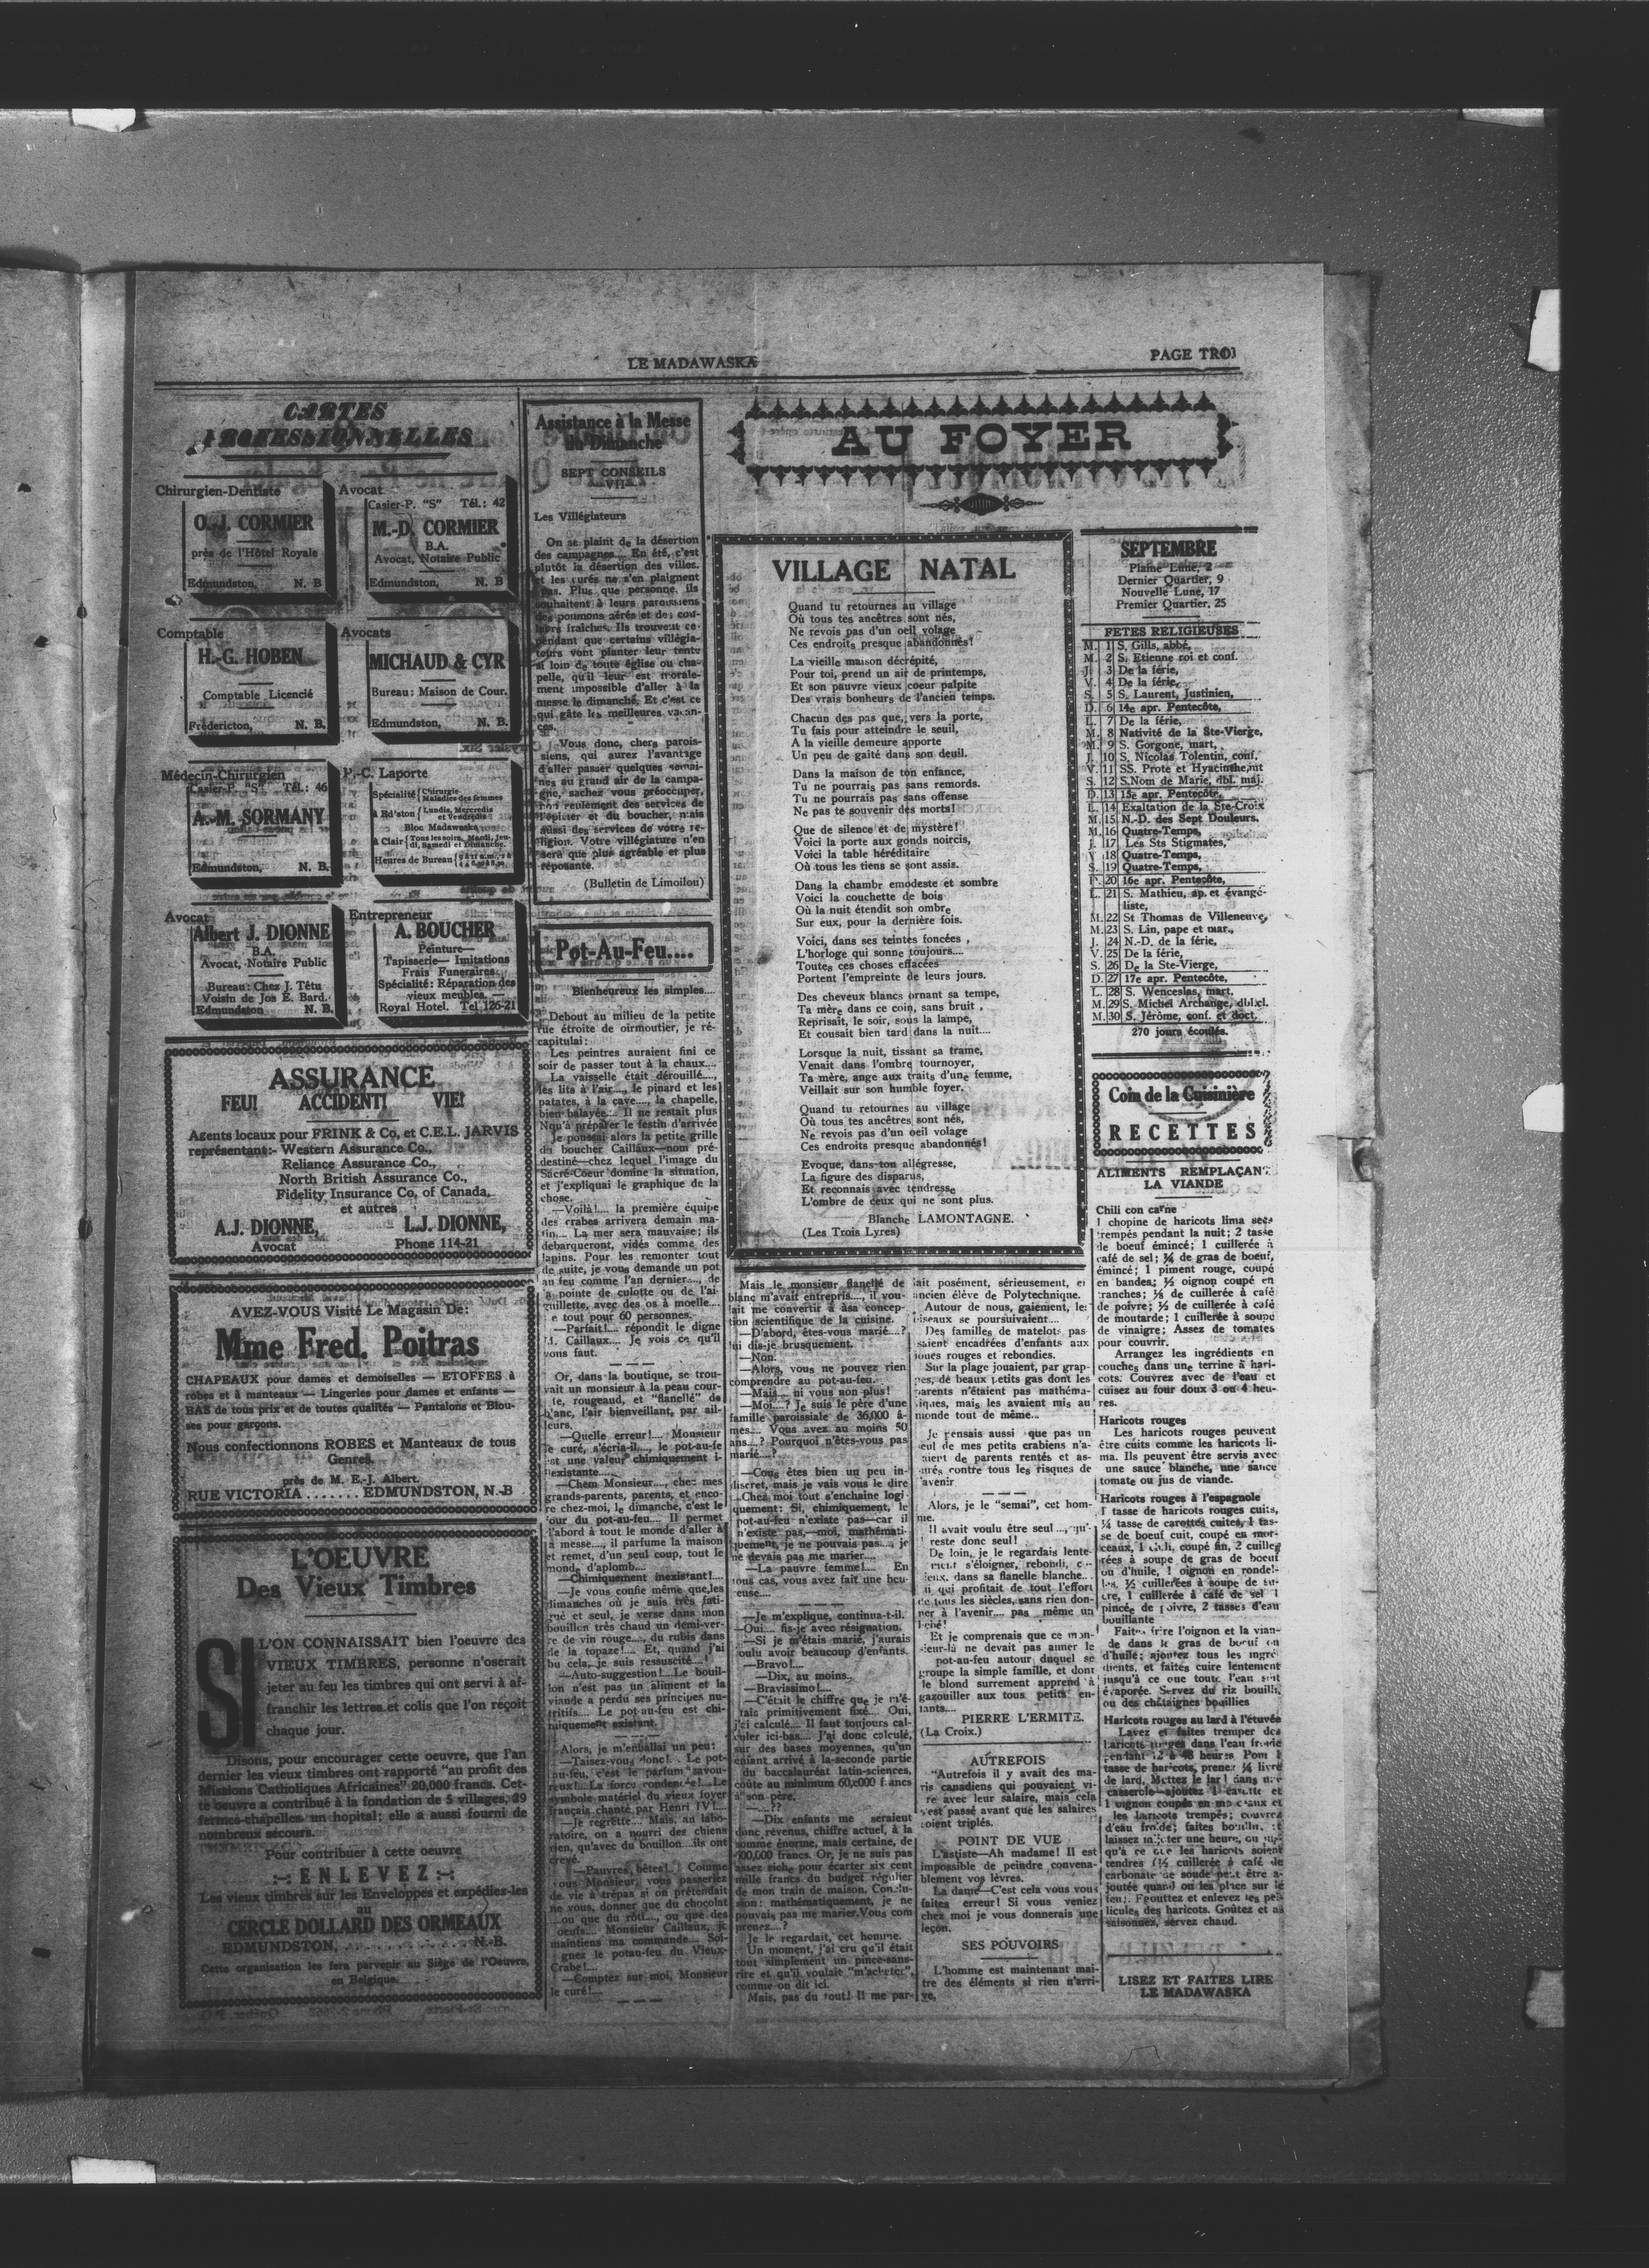 LE MADAWASKA
PAGE TROI
CARTES
PROFESSIONNELLES
Chirurgien-Dentiste
O.-J. CORMIER
près de l'Hôtel Royale
Edmundston, N. B
Avocat
Casier-P. "S" Tél.: 42
M.-D. CORMIER
B.A.
Avocat, Notaire Public
Edmundston, N. B
Comptable
H.-G. HOBEN
Comptable Licencié
Frédericton, N. B.
Avocats
MICHAUD & CYR
Bureau: Maison de Cour.
Edmundston, N. B.
Médecin-Chirurgien
Casier-P. "S" Tél.: 46
A.-M. SORMANY
Edmundston, N. B.
P.-C. Laporte
Spécialité Chirurgie
Maladies des femmes
à Ed'ston Lundis, Mercredis
et Vendredis
Bloc Madawaska
à Clair Tous les soirs, Mardi, Jeu-
di, Samedi et Dimanche.
Heures de Bureau
Avocat
Albert J. DIONNE
B.A.
Avocat, Notaire Public
Bureau: Chez J. Têtu
Voisin de Jos E. Bard.
Edmundston N. B.
Entrepreneur
A. BOUCHER
Peinture—
Tapisserie— Imitations
Frais Funeraires
Spécialité: Réparation des
vieux meubles. —
Royal Hotel. Tel 126-21
ASSURANCE
FEU! ACCIDENT! VIE!
Agents locaux pour FRINK & Co, et C.E.L. JARVIS
représentant:- Western Assurance Co.,
Reliance Assurance Co.,
North British Assurance Co.,
Fidelity Insurance Co, of Canada,
et autres
A.J. DIONNE, L.J. DIONNE,
Avocat Phone 114-21
AVEZ-VOUS Visité Le Magasin De:
Mme Fred. Poitras
CHAPEAUX pour dames et demoiselles — ETOFFES à
robes et à manteaux — Lingeries pour dames et enfants —
BAS de tous prix et de toutes qualités — Pantalons et Blou-
ses pour garçons.
Nous confectionnons ROBES et Manteaux de tous
Genres.
près de M. E.-J. Albert.
RUE VICTORIA ....... EDMUNDSTON, N.-B
L'OEUVRE
Des Vieux Timbres
SI L'ON CONNAISSAIT bien l'oeuvre des
VIEUX TIMBRES, personne n'oserait
jeter au feu les timbres qui ont servi à af-
franchir les lettres et colis que l'on reçoit
chaque jour.
Disons, pour encourager cette oeuvre, que l'an
dernier les vieux timbres ont rapporté "au profit des
Missions Catholiques Africaines" 20,000 francs. Cet-
te oeuvre a contribué à la fondation de 5 villages, 29
fermes-chapelles, un hopital; elle a aussi fourni de
nombreux secours.
Pour contribuer à cette oeuvre
:-: ENLEVEZ :-:
Les vieux timbres sur les Enveloppes et expédiez-les
au
CERCLE DOLLARD DES ORMEAUX
EDMUNDSTON, N.-B.
Cette organisation les fera parvenir au Siège de l'Oeuvre,
en Belgique.
Assistance à la Messe
du Dimanche
SEPT CONSEILS
VII
Les Villégiateurs
On se plaint de la désertion
des campagnes.... En été, c'est
plutôt la désertion des villes.
et les curés ne s'en plaignent
pas. Plus que personne, ils
souhaitent à leurs paroissiens
des poumons aérés et des cou-
leurs fraîches. Ils trouvent ce-
pendant que certains villégia-
teurs vont planter leur tente
si loin de toute église ou cha-
pelle, qu'il leur est morale-
ment impossible d'aller à la
messe le dimanche. Et c'est ce
qui gâte les meilleures vacan-
ces.
Vous donc, chers parois-
siens, qui aurez l'avantage
d'aller passer quelques semai-
nes au grand air de la campa-
gne, sachez vous préoccuper,
non seulement des services de
l'épicier et du boucher, mais
aussi des services de votre re-
ligion. Votre villégiature n'en
sera que plus agréable et plus
réposante.
(Bulletin de Limoilou)
Pot-Au-Feu....
Bienheureux les simples....
Debout au milieu de la petite
rue étroite de oirmoutier, je ré-
capitulai:
Les peintres auraient fini ce
soir de passer tout à la chaux....
La vaisselle était dérouillé....,
les lits à l'air...., le pinard et les
patates, à la cave...., la chapelle,
bien balayée.... Il ne restait plus
qu'à préparer le festin d'arrivée
Je poussai alors la petite grille
du boucher Caillaux—nom pré-
destiné—chez lequel l'image du
Sacré-Coeur domine la situation,
et j'expliquai le graphique de la
chose.
—Voilà!.... la première équipe
des crabes arrivera demain ma-
tin.... La mer sera mauvaise; ils
débarqueront, vidés comme des
lapins. Pour les remonter tout
de suite, je vous demande un pot
au feu comme l'an dernier...., de
a pointe de culotte ou de l'ai-
guillette, avec des os à moelle....
e tout pour 60 personnes.
—Parfait!.... répondit le digne
M. Caillaux.... Je vois ce qu'il
vous faut.
Or, dans la boutique, se trou-
vait un monsieur à la peau cour-
te, rougeaud, et "flanellé" de
blanc, l'air bienveillant, par ail-
leurs.
—Quelle erreur!.... Monsieur
le curé, s'écria-il...., le pot-au-fe
est une valeur chimiquement i-
nexistante....
—Chem Monsieur...., chez mes
grands-parents, parents, et enco-
re chez-moi, le dimanche, c'est le
jour du pot-au-feu.... Il permet
d'abord à tout le monde d'aller à
a messe...., il parfume la maison
et remet, d'un seul coup, tout le
monde d'aplomb....
—Chimiquement inexistant!....
—Je vous confie même que,les
dimanches où je suis très fati-
gué et seul, je verse dans mon
bouillon très chaud un demi-ver-
re de vin rouge...., du rubis dans
de la topaze!.... Et, quand j'ai
bu cela, je suis ressuscité....!
—Auto-suggestion!....Le bouil-
lon n'est pas un aliment et la
viande a perdu ses principes nu-
tritifs.... Le pot-au-feu est chi-
miquement existant.
Alors, je m'emballai un peu:
—Taisez-vous donc!.. Le pot-
au-feu, c'est le parfum savou-
reux!.... La force condensée!....Le
symbole matériel du vieux foyer
français chanté par Henri IV!....
—Je regrette.... Mais, au labo-
ratoire, on a nourri des chiens
rien, qu'avec du bouillon....ils ont
crevé.
—Pauvres bêtes!.... Comme
vous Monsieur, vous passeriez
de vie à trépas si on prétendait
ne vous, donner que du chocolat
....ou que du rôti...., ou que des
oeufs.... Monsieur Caillaux, je
maintiens ma commande.... Soi-
gnez le potau-feu du Vieux-
Crabe!....
—Comptez sur moi, Monsieur
le curé!....
AU FOYER
VILLAGE NATAL
Quand tu retournes au village
Où tous tes ancêtres sont nés,
Ne revois pas d'un oeil volage
Ces endroits presque abandonnés!
La vieille maison décrépité,
Pour toi, prend un air de printemps,
Et son pauvre vieux coeur palpite
Des vrais bonheurs de l'ancien temps.
Chacun des pas que, vers la porte,
Tu fais pour atteindre le seuil,
A la vieille demeure apporte
Un peu de gaité dans son deuil.
Dans la maison de ton enfance,
Tu ne pourrais pas sans remords.
Tu ne pourrais pas sans offense
Ne pas te souvenir des morts!
Que de silence et de mystère!
Voici la porte aux gonds noircis,
Voici la table héréditaire
Où tous les tiens se sont assis.
Dans la chambre emodeste et sombre
Voici la couchette de bois
Où la nuit étendit son ombre
Sur eux, pour la dernière fois.
Voici, dans ses teintes foncées ,
L'horloge qui sonne toujours....
Toutes ces choses effacées
Portent l'empreinte de leurs jours.
Des cheveux blancs ornant sa tempe,
Ta mère dans ce coin, sans bruit ,
Reprisait, le soir, sous la lampe,
Et cousait bien tard dans la nuit....
Lorsque la nuit, tissant sa trame,
Venait dans l'ombre tournoyer,
Ta mère, ange aux traits d'une femme,
Veillait sur son humble foyer.
Quand tu retournes au village
Où tous tes ancêtres sont nés,
Ne revois pas d'un oeil volage
Ces endroits presque abandonnés!
Evoque, dans ton allégresse,
La figure des disparus,
Et reconnais avec tendresse
L'ombre de ceux qui ne sont plus.
Blanche LAMONTAGNE.
(Les Trois Lyres)
Mais le monsieur flanellé de
blanc m'avait entrepris...., il vou-
lait me convertir à àsa concep-
tion scientifique de la cuisine.
—D'abord, êtes-vous marié....?
lui dis-je brusquement.
—Non.
—Alors, vous ne pouvez rien
comprendre au pot-au-feu.
—Mais.... ni vous non plus!
—Moi....? Je suis le père d'une
famille paroissiale de 36,000 â-
mes.... Vous avez au moins 50
ans....? Pourquoi n'êtes-vous pas
marié....?
—Cous êtes bien un peu in-
discret, mais je vais vous le dire
..Chez moi tout s'enchaine logi
quement: Si, chimiquement, le
pot-au-feu n'existe pas—car il
n'existe pas,—moi, mathémati-
quement, je ne pouvais pas...., je
ne devais pas me marier....
—La pauvre femme!.... En
tous cas, vous avez fait une heu-
euse....
—Je m'explique, continua-t-il.
—Oui.... fis-je avec résignation.
—Si je m'étais marié, j'aurais
voulu avoir beaucoup d'enfants.
—Bravo!....
—Dix, au moins..
—Bravissimo!....
—C'était le chiffre que je m'é-
tais primitivement fixé.... Oui,
j'ci calculé.... Il faut toujours cal-
culer ici-bas.... J'ai donc calculé,
sur des bases moyennes, qu'un
enfant arrivé à la-seconde partie
du baccalauréat latin-sciences,
coûte au minimum 60,000 francs
à son père.
—....??
—Dix enfants me seraient
donc revenus, chiffre actuel, à la
somme énorme, mais certaine, de
600,000 francs. Or, je ne suis pas
assez riche pour écarter six cent
mille francs du budget régulier
de mon train de maison. Conclu-
sion: mathématiquement, je ne
pouvais pas me marier.Vous com
prenez....?
Je le regardait, cet homme.
Un moment, j'ai cru qu'il était
tout simplement un pince-sans-
rire et qu'il voulait "m'acheter",
comme on dit ici.
Mais, pas du tout! Il me par-
lait posément, sérieusement, en
ancien élève de Polytechnique.
Autour de nous, gaiement, les
oiseaux se poursuivaient....
Des familles de matelots pas-
saient encadrées d'enfants aux
joues rouges et rebondies.
Sur la plage jouaient, par grap-
pes, de beaux petits gas dont les
parents n'étaient pas mathéma-
tiques, mais les avaient mis au
monde tout de même...
Je pensais aussi que pas un
seul de mes petits crabiens n'a-
vaient de parents rentés et as-
surés contre tous les risques de
l'avenir
Alors, je le "semai", cet hom-
me.
Il avait voulu être seul ..., qu'-
reste donc seul!
De loin, je le regardais lente-
ment s'éloigner, rebondi,
dans sa flanelle blanche..
qui profitait de tout l'effort
de tous les siècles, sans rien don-
ner à l'avenir.... pas même un
bébé!
Et je comprenais que ce mon-
sieur-là ne devait pas aimer le
pot-au-feu autour duquel se
groupe la simple famille, et dont
le blond surrement apprend à
gazouiller aux tous petits en-
fants....
PIERRE L'ERMITE.
(La Croix.)
AUTREFOIS
"Autrefois il y avait des ma-
ris canadiens qui pouvaient vi-
re avec leur salaire, mais cela
s'est passé avant que les salaires
soient triplés.
POINT DE VUE
L'astiste—Ah madame! Il est
impossible de peindre convena-
blement vos lèvres.
La dame—C'est cela vous vous
faites erreur! Si vous veniez
chez moi je vous donnerais une
leçon.
SES POUVOIRS
L'homme est maintenant mai-
tre des éléments si rien n'arri-
ve.
SEPTEMBRE
Plaine Lune, 2
Dernier Quartier, 9
Nouvelle Lune, 17
Premier Quartier, 25
FETES RELIGIEUSES
M. 1 S. Gills, abbé,
M. 2 S. Etienne roi et conf.
J. 3 De la férie,
V. 4 De la férie,
S. 5 S. Laurent, Justinien,
D. 6 14e apr. Pentecôte,
L. 7 De la férie,
M. 8 Nativité de la Ste-Vierge,
M. 9 S. Gorgone, mart,
J. 10 S. Nicolas Tolentin, conf,
V. 11 SS. Prote et Hyacinthe,mt
S. 12 S.Nom de Marie, dbl. maj.
D. 13 15e apr. Pentecôte,
L. 14 Exaltation de la Ste-Croix
M. 15 N.-D. des Sept Douleurs.
M. 16 Quatre-Temps,
J. 17 Les Sts Stigmates,
V 18 Quatre-Temps,
S. 19 Quatre-Temps,
D. 20 16e apr. Pentecôte,
L. 21 S. Mathieu, ap. et évangé-
liste,
M. 22 St Thomas de Villeneuve,
M. 23 S. Lin, pape et mar.,
J. 24 N.-D. de la férie,
V. 25 De la férie,
S. 26 De la Ste-Vierge,
D. 27 17e apr. Pentecôte,
L. 28 S. Wenceslas, mart,
M. 29 S. Michel Archange, dbl.cl.
M. 30 S. Jérôme, conf. et doct,
270 jours écoulés.
Coin de la Cuisinière
RECETTES
ALIMENTS REMPLAÇANT
LA VIANDE
Chili con carne
1 chopine de haricots lima secs
trempés pendant la nuit; 2 tasse
de boeuf émincé; 1 cuillerée à
café de sel; ¼ de gras de boeuf,
émincé; 1 piment rouge, coupé
en bandes; ½ oignon coupé en
tranches; ⅛ de cuillerée à café
de poivre; ½ de cuillerée à café
de moutarde; 1 cuillerée à soupe
de vinaigre; Assez de tomates
pour couvrir.
Arrangez les ingrédients en
couches dans une terrine à hari-
cots. Couvrez avec de l'eau et
cuisez au four doux 3 ou 4 heu-
res.
Haricots rouges
Les haricots rouges peuvent
être cuits comme les haricots li-
ma. Ils peuvent être servis avec
une sauce blanche, une sauce
tomate ou jus de viande.
Haricots rouges à l'espagnole
1 tasse de haricots rouges cuits,
¼ tasse de carottes cuites, 1 tas-
se de boeuf cuit, coupé en mor-
ceaux, 1 chili, coupé fin, 2 cuille-
rées à soupe de gras de boeuf
ou d'huile, 1 oignon en rondel-
les, ½ cuillerées à soupe de su-
cre, 1 cuillerée à café de sel 1
pincée de poivre, 2 tasses d'eau
bouillante
Faites frire l'oignon et la vian-
de dans le gras de boeuf ou
d'huile; ajoutez tous les ingré
dients, et faites cuire lentement
jusqu'à ce que toute l'eau soit
évaporée. Servez du riz bouilli,
ou des châtaignes bouillies
Haricots rouges au lard à l'étuvée
Lavez et faites tremper des
haricots rouges dans l'eau froide
pendant 12 à 48 heures. Pour 1
tasse de haricots, prenez ¼ livre
de lard. Mettez le lard dans une
casserole—ajoutez 1 carotte et
1 oignon coupés en morceaux et
les haricots trempés; couvrez
d'eau froide; faites bouillir, et
laissez mijoter une heure, ou jus-
qu'à ce que les haricots soient
tendres (½ cuillerée à café de
carbonate de soude peut être a-
joutée quand on les place sur le
feu; Egouttez et enlevez les pel-
licules des haricots. Goûtez et as
saisonnez, servez chaud.
LISEZ ET FAITES LIRE
LE MADAWASKA